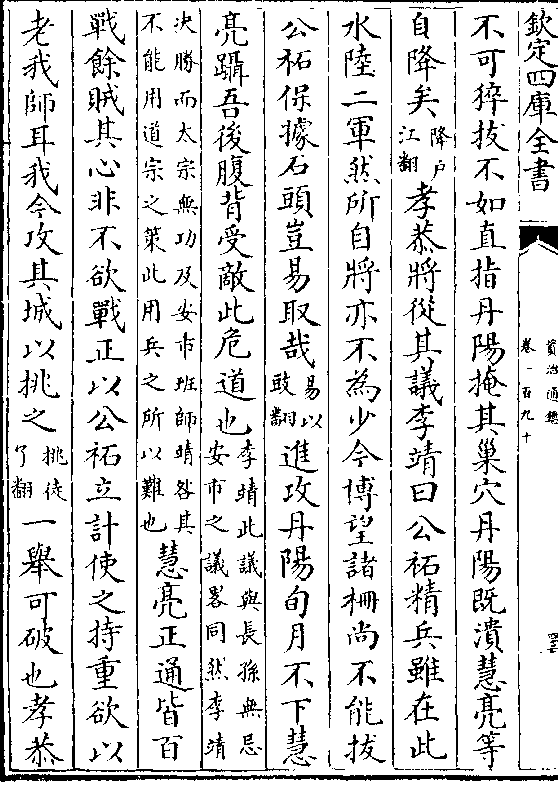 欽定四庫全書
資治通鑑
卷一百九十
不可猝拔不如直指丹陽掩其巢穴丹陽既潰慧亮等
自降矣降户江翻孝恭將從其議李靖曰公祏精兵雖在此
水陸二軍然所自將亦不為少今博望諸柵尚不能拔
公祏保據石頭豈易取哉易以豉翻進攻丹陽旬月不下慧
亮躡吾後腹背受敵此危道也李靖此議與長孫無忌安市之議畧同然李靖
決勝而太宗無功及安市班師靖咎其不能用道宗之策此用兵之所以難也慧亮正通皆百
戰餘賊其心非不欲戰正以公祏立計使之持重欲以
老我師耳我今攻其城以挑之挑徒了翻一舉可破也孝恭